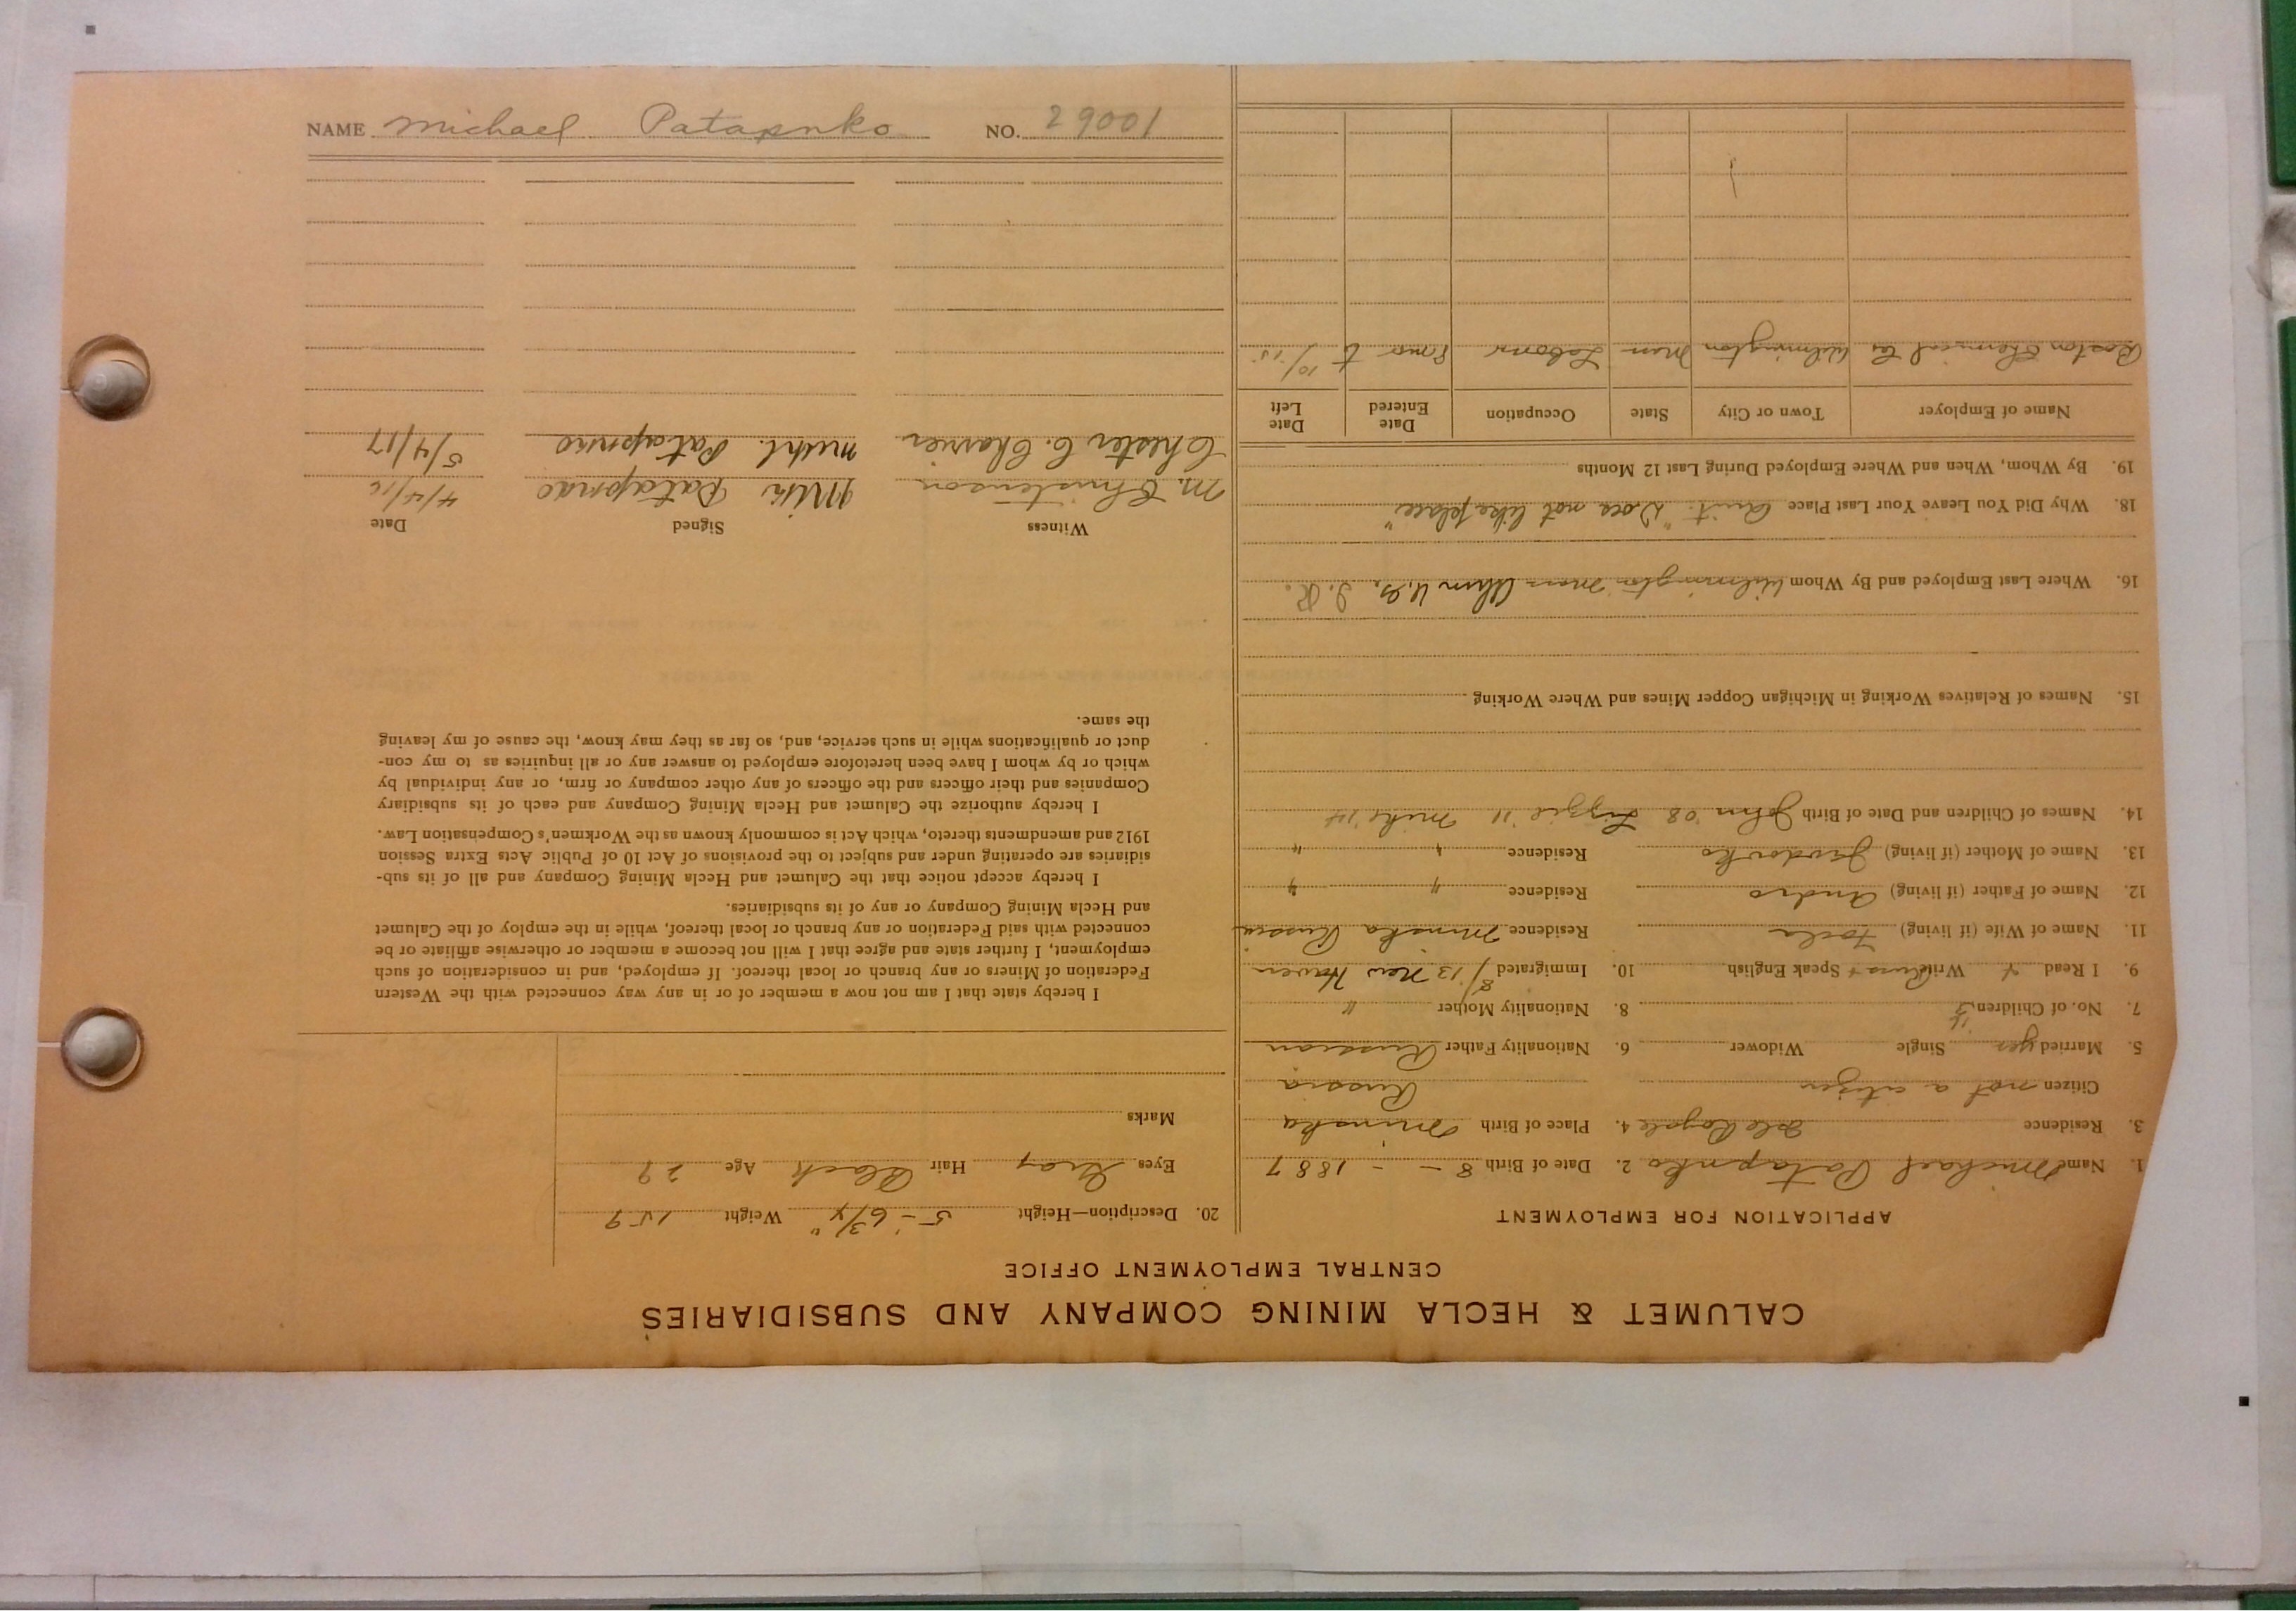 CALUMET & HECLA MINING COMPANY AND SUBSIDIARIES
CENTRAL EMPLOYMENT OFFICE
APPLICATION FOR EMPLOYMENT
1. Name Michael Patapnko 2. Date of Birth 8 – – 1887
3. Residence Isle Royale 4. Place of Birth Minska
Citizen not a citizen Russia
5. Married yes Single Widower 6. Nationality Father Russian
7. No. of Children 3 8. Nationality Mother "
9. I Read + Write Russ + Speak English 10. Immigrated 8/13 New Haven
11. Name of Wife (if living) Residence Minska Russia
12. Name of Father (if living) Andro Residence " "
13. Name of Mother (if living) Residence " "
14. Names of Children and Date of Birth John '08 Lizzie '11 Mike '14
15. Names of Relatives Working in Michigan Copper Mines and Where Working
16. Where Last Employed and By Whom Wilmington Mass I. R.
18. Why Did You Leave Your Last Place Quit. "Does not like place"
19. By Whom, When and Where Employed During Last 12 Months
Name of Employer Town or City State Occupation Date Entered Date Left
Boston Chemical Co Wilmington Mass Labour 8 mos to 10/15
20. Description—Height 5'- 6 3/4" Weight 159
Eyes Gray Hair Black Age 29
Marks
I hereby state that I am not now a member of or in any way connected with the Western
Federation of Miners or any branch or local thereof. If employed, and in consideration of such
employment, I further state and agree that I will not become a member or otherwise affiliate or be
connected with said Federation or any branch or local thereof, while in the employ of the Calumet
and Hecla Mining Company or any of its subsidiaries.
I hereby accept notice that the Calumet and Hecla Mining Company and all of its sub-
sidiaries are operating under and subject to the provisions of Act 10 of Public Acts Extra Session
1912 and amendments thereto, which Act is commonly known as the Workmen's Compensation Law.
I hereby authorize the Calumet and Hecla Mining Company and each of its subsidiary
Companies and their officers and the officers of any other company or firm, or any individual by
which or by whom I have been heretofore employed to answer any or all inquiries as to my con-
duct or qualifications while in such service, and, so far as they may know, the cause of my leaving
the same.
Witness Signed Date
M. Christenson Patapnao 4/4/16
Chester C. Charrier Michl. Patapnic 5/4/17
NAME Michael Patapnko NO. 29001